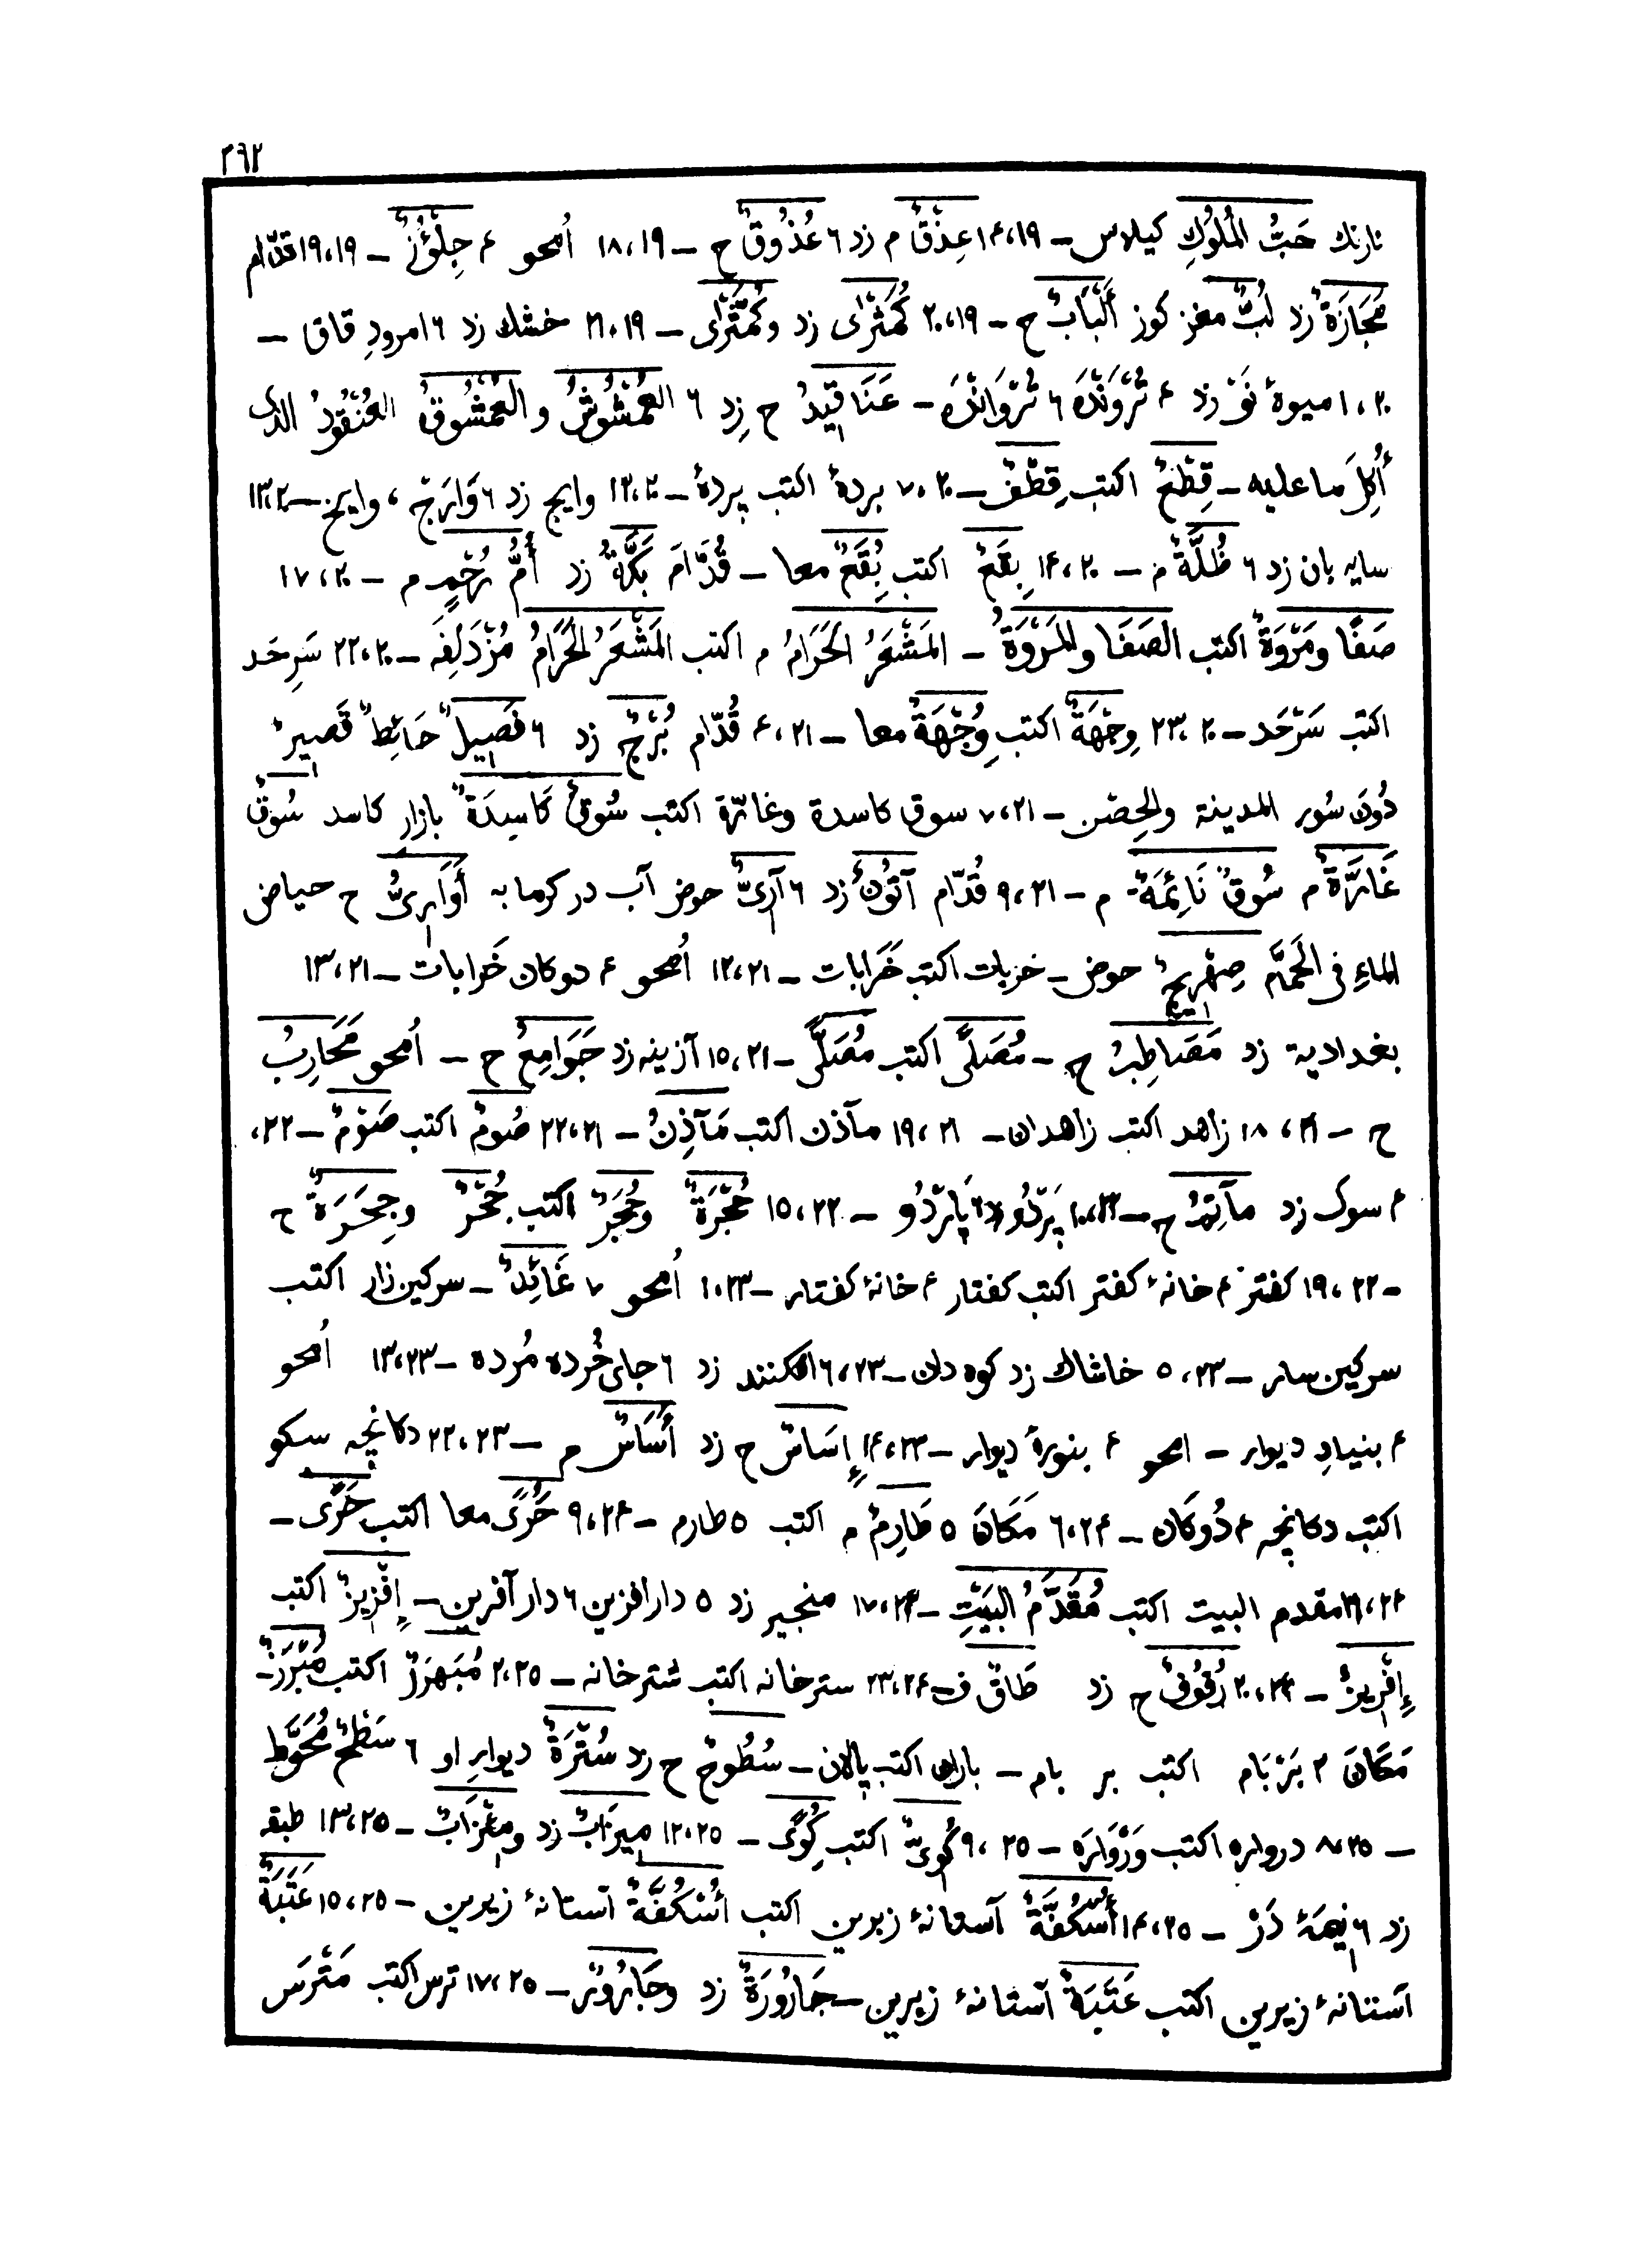 ٢٦٢
نارنك حَبُّ المُلُوكِ كيلاس ــ ١٤،١٩ عِذْقٌ م زد ٦ عُذُوقٌ ح ــ ١٨،١٩ اُمحو ٤ جِلَّوْزٌ ــ ١٩،١٩ قدّام
مَجَازَةٌ زد لُبٌّ مغز كوز أَلْبَابٌ ح ــ ٢٠،١٩ كُمَثْرَى زد وكُمَّثْرَى ــ ٢١،١٩ خشك زد ٦ امرودِ قاق ــ
١،٢٠ ميوهٔ نَوْ زد ٤ تُرْوَنْدَه ٦ تُرْوَانْدَه ــ عَنَاقِيدُ ح زِد ٦ العُمْشُوشُ و العُمْشُوقُ العُنْقُودُ الذى
أُكِلَ ما عليه ــ قِطْعٌ اكتب قِطْفٌ ــ ٧،٢٠ بردهٔ اكتب پردهٔ ــ ١٢،٢٠ وايج زد ٦ وَارَجْ ، وايج ــ ١٣،٢٠
سايه بان زد ٦ ظُلَّةٌ م ــ ١٤،٢٠ بِقَعٌ اكتب بُقَعٌ معا ــ قُدَّامَ بَكَّةُ زد أُمُّ رُحْمٍ م ــ ١٧،٢٠
صَفًا ومَرْوَةٌ اكتب الصَفَا والمَرْوَةُ ــ المَشْعَرُ الحَرَامُ م اكتب المَشْعَرُ الحَرَامُ مُزْدَلِفَه ــ ٢٢،٢٠ سَرِحَد
اكتب سَرْحَد ــ ٢٣،٢٠ وِجْهَةٌ اكتب وُجْهَةٌ معا ــ ٤،٢١ قُدّام بُرْجٌ زد ٦ فَصِيلٌ حَائِطٌ قَصِيرٌ
دُونَ سُور المدينة والحِصْن ــ ٧،٢١ سوق كاسدة وغارّة اكتب سُوقٌ كَاسِدَةٌ بازارِ كاسد سُوقٌ
غَارَّةٌ م سُوقٌ نَائِمَةٌ م ــ ٩،٢١ قُدّام آتُونٌ زد ٦ آرِىٌّ حوض آب در كرما به أَوَارِىُّ ح حياض
الماءِ فى الحَمَّام صِهْرِيجٌ حوض ــ خربات اكتب خَرَابات ــ ١٢،٢١ اُمحو ٤ دوكان خَرابات ــ ١٣،٢١
بغدادية زد مَصَاطِبُ ح ــ مُصَلَّى اكتب مُصَلًّى ــ ١٥،٢١ آزينه زد جَوَامِعُ ح ــ اُمحو مَحَارِبُ
ح ــ ١٨،٢١ زاهد اكتب زاهدان ــ ١٩،٢١ مآذن اكتب مَآذِنُ ــ ٢٢،٢١ صُومٌ اكتب صَوْمٌ ــ ٢٢،
٤ سوك زد مآتِمُ ح ــ ١٠،٢٢ پَرْدُو ٦ پَارْدُو ــ ١٥،٢٢ حُجْرَةٌ وحُجَرٌ اكتب جُحْرٌ وجِحَرَةٌ ح
ــ ١٩،٢٢ كفتر ٤ خانهٔ كفتر اكتب كفتار ٤ خانهٔ كفتار ــ ١،٢٣ اُمحو ٧ غَائِدٌ ــ سركين زار اكتب
سركين سار ــ ٥،٢٣ خاشاك زد كوه دان ــ ٦،٢٣ افكنند زد ٦ جاى خُرده مُرده ــ ١٣،٢٣ اُمحو
٤ بنيادِ ديوار ــ امحو ٤ بنورهٔ ديوار ــ ١٤،٢٣ إِسَاسٌ ح زد أُسَاسٌ م ــ ٢٢،٢٣ دكانچه سكو
اكتب دكانچه ٤ دُوكان ــ ٦،٢٤ مَكَانَ ٥ طَارِمٌ م اكتب ٥ طارم ــ ٩،٢٤ حَرًى معا اكتب حَرًى ــ
١١،٢٤ مقدم البيت اكتب مُقَدَّمُ البَيْتِ ــ ١٧،٢٤ منجير زد ٥ دارافزين ٦ دار آفرين ــ إِفْزِيزٌ اكتب
إِفْرِيزٌ ــ ٢٠،٢٤ رُفُوفٌ ح زد طَاقٌ ف ــ ٢٣،٢٤ سترخانه اكتب شترخانه ــ ٢،٢٥ مُبَهرَزٌ اكتب مُبَرَّزٌ ــ
مَكَانَ ٢ بَرْبَام اكتب بر بام ــ باران اكتب پالان ــ سُطُوحٌ ح زد سُتْرَةٌ ديوارِ او ٦ سَطْحٌ مُحَوَّط
ــ ٨،٢٥ درواره اكتب وَرْوَارَه ــ ٩،٢٥ كُوِىٌّ اكتب كُوًى ــ ١٢،٢٥ مِيزَابٌ زد ومِئْزَابٌ ــ ١٣،٢٥ طبقه
زد ٦ نِيمَهٔ دَرْ ــ ١٤،٢٥ أُسْكُفَّةٌ آستانهٔ زبرين اكتب أُسْكُفَّةٌ آستانهٔ زيرين ــ ١٥،٢٥ عَتَبَةٌ
آستانهٔ زيرين اكتب عَتَبَةٌ آستانهٔ زبرين ــ جَارُورَةٌ زد وجَارُورٌ ــ ١٧،٢٥ ترس اكتب مَتْرَس